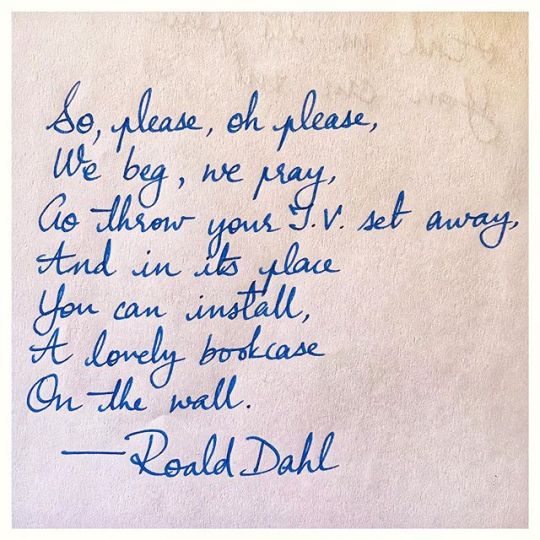 So, please, oh please,
We beg, we pray,
Go throw your T.V. set away,
And in its place
You can install,
A lovely bookcase
On the wall.
—Roald Dahl